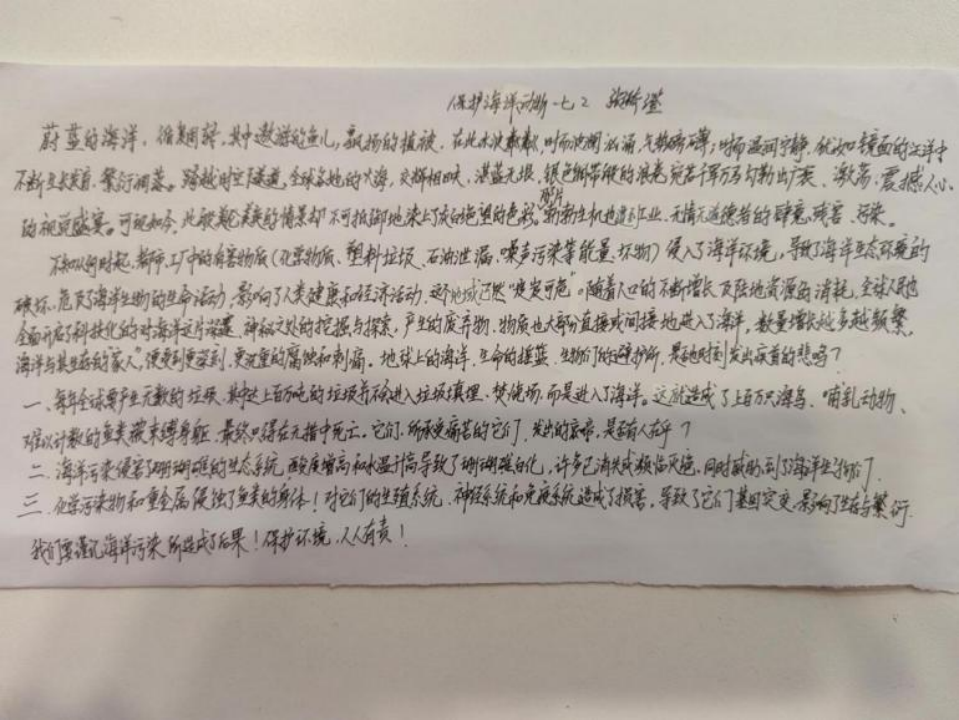 保护海洋动物 七2
蔚蓝的海洋，循复翻转，其中遨游的鱼儿，飘扬的植被，在此水波，时而波澜汹涌，气势磅礴；时而温润宁静，犹如镜面的汪洋中
不断生长发育、繁衍凋落。跨越时空隧道，全球各地的大海，交辉相映，湛蓝无垠，银色绸带般的浪卷宛若千军万马勾勒出广袤、激荡、震撼人心
的视觉盛宴。可现如今，此般美的情景却不可抵御地染上了灰白绝望的色彩。勃勃生机也工业、无情无道德者的肆意残害、污染。
不知从何时起，都市、工厂中的有害物质（化学物质、塑料垃圾、石油泄漏、噪声污染等能量、坏物）侵入了海洋环境，导致了海洋生态环境的
破坏，危及了海洋生物的生命活动，影响了人类健康和经济活动，这个地域已然“岌岌可危”。随着人口的不断增长及陆地资源的消耗，全球人民也
全面开启了科技化的对海洋这片深邃、神秘之处的挖掘与探索，产生的废弃物、物质也大部分直接或间接地进入了海洋，数量增长越多越频繁，
海洋与其生存的“家人”便受到更深刻、更沉重的腐蚀和刺痛。地球上的海洋，生命的摇篮、生物们的避护所，是时刻发出哀首的悲鸣？
一、每年全球要产生无数的垃圾，其中达上百万吨的垃圾并不会进入垃圾填埋、焚烧场，而是进入了海洋。这就造成了上百万只海鸟、哺乳动物、
难以计数的鱼类被束缚身躯，最终只得在无措中死亡。它们，所承受痛苦的它们，发出的哀啼，是否有人在乎？
二、海洋污染侵害了珊瑚礁的生态系统，酸度增高和水温升高导致了珊瑚礁白化，许多已消失或濒临灭绝，同时威胁到了海洋生物们
三、化学污染物和重金属侵蚀了鱼类的身体！对它们的生殖系统、神经系统和免疫系统造成了损害，导致了它们基因突变，影响了生存与繁衍.
我们要谨记海洋污染所造成了后果！保护环境，人人有责！